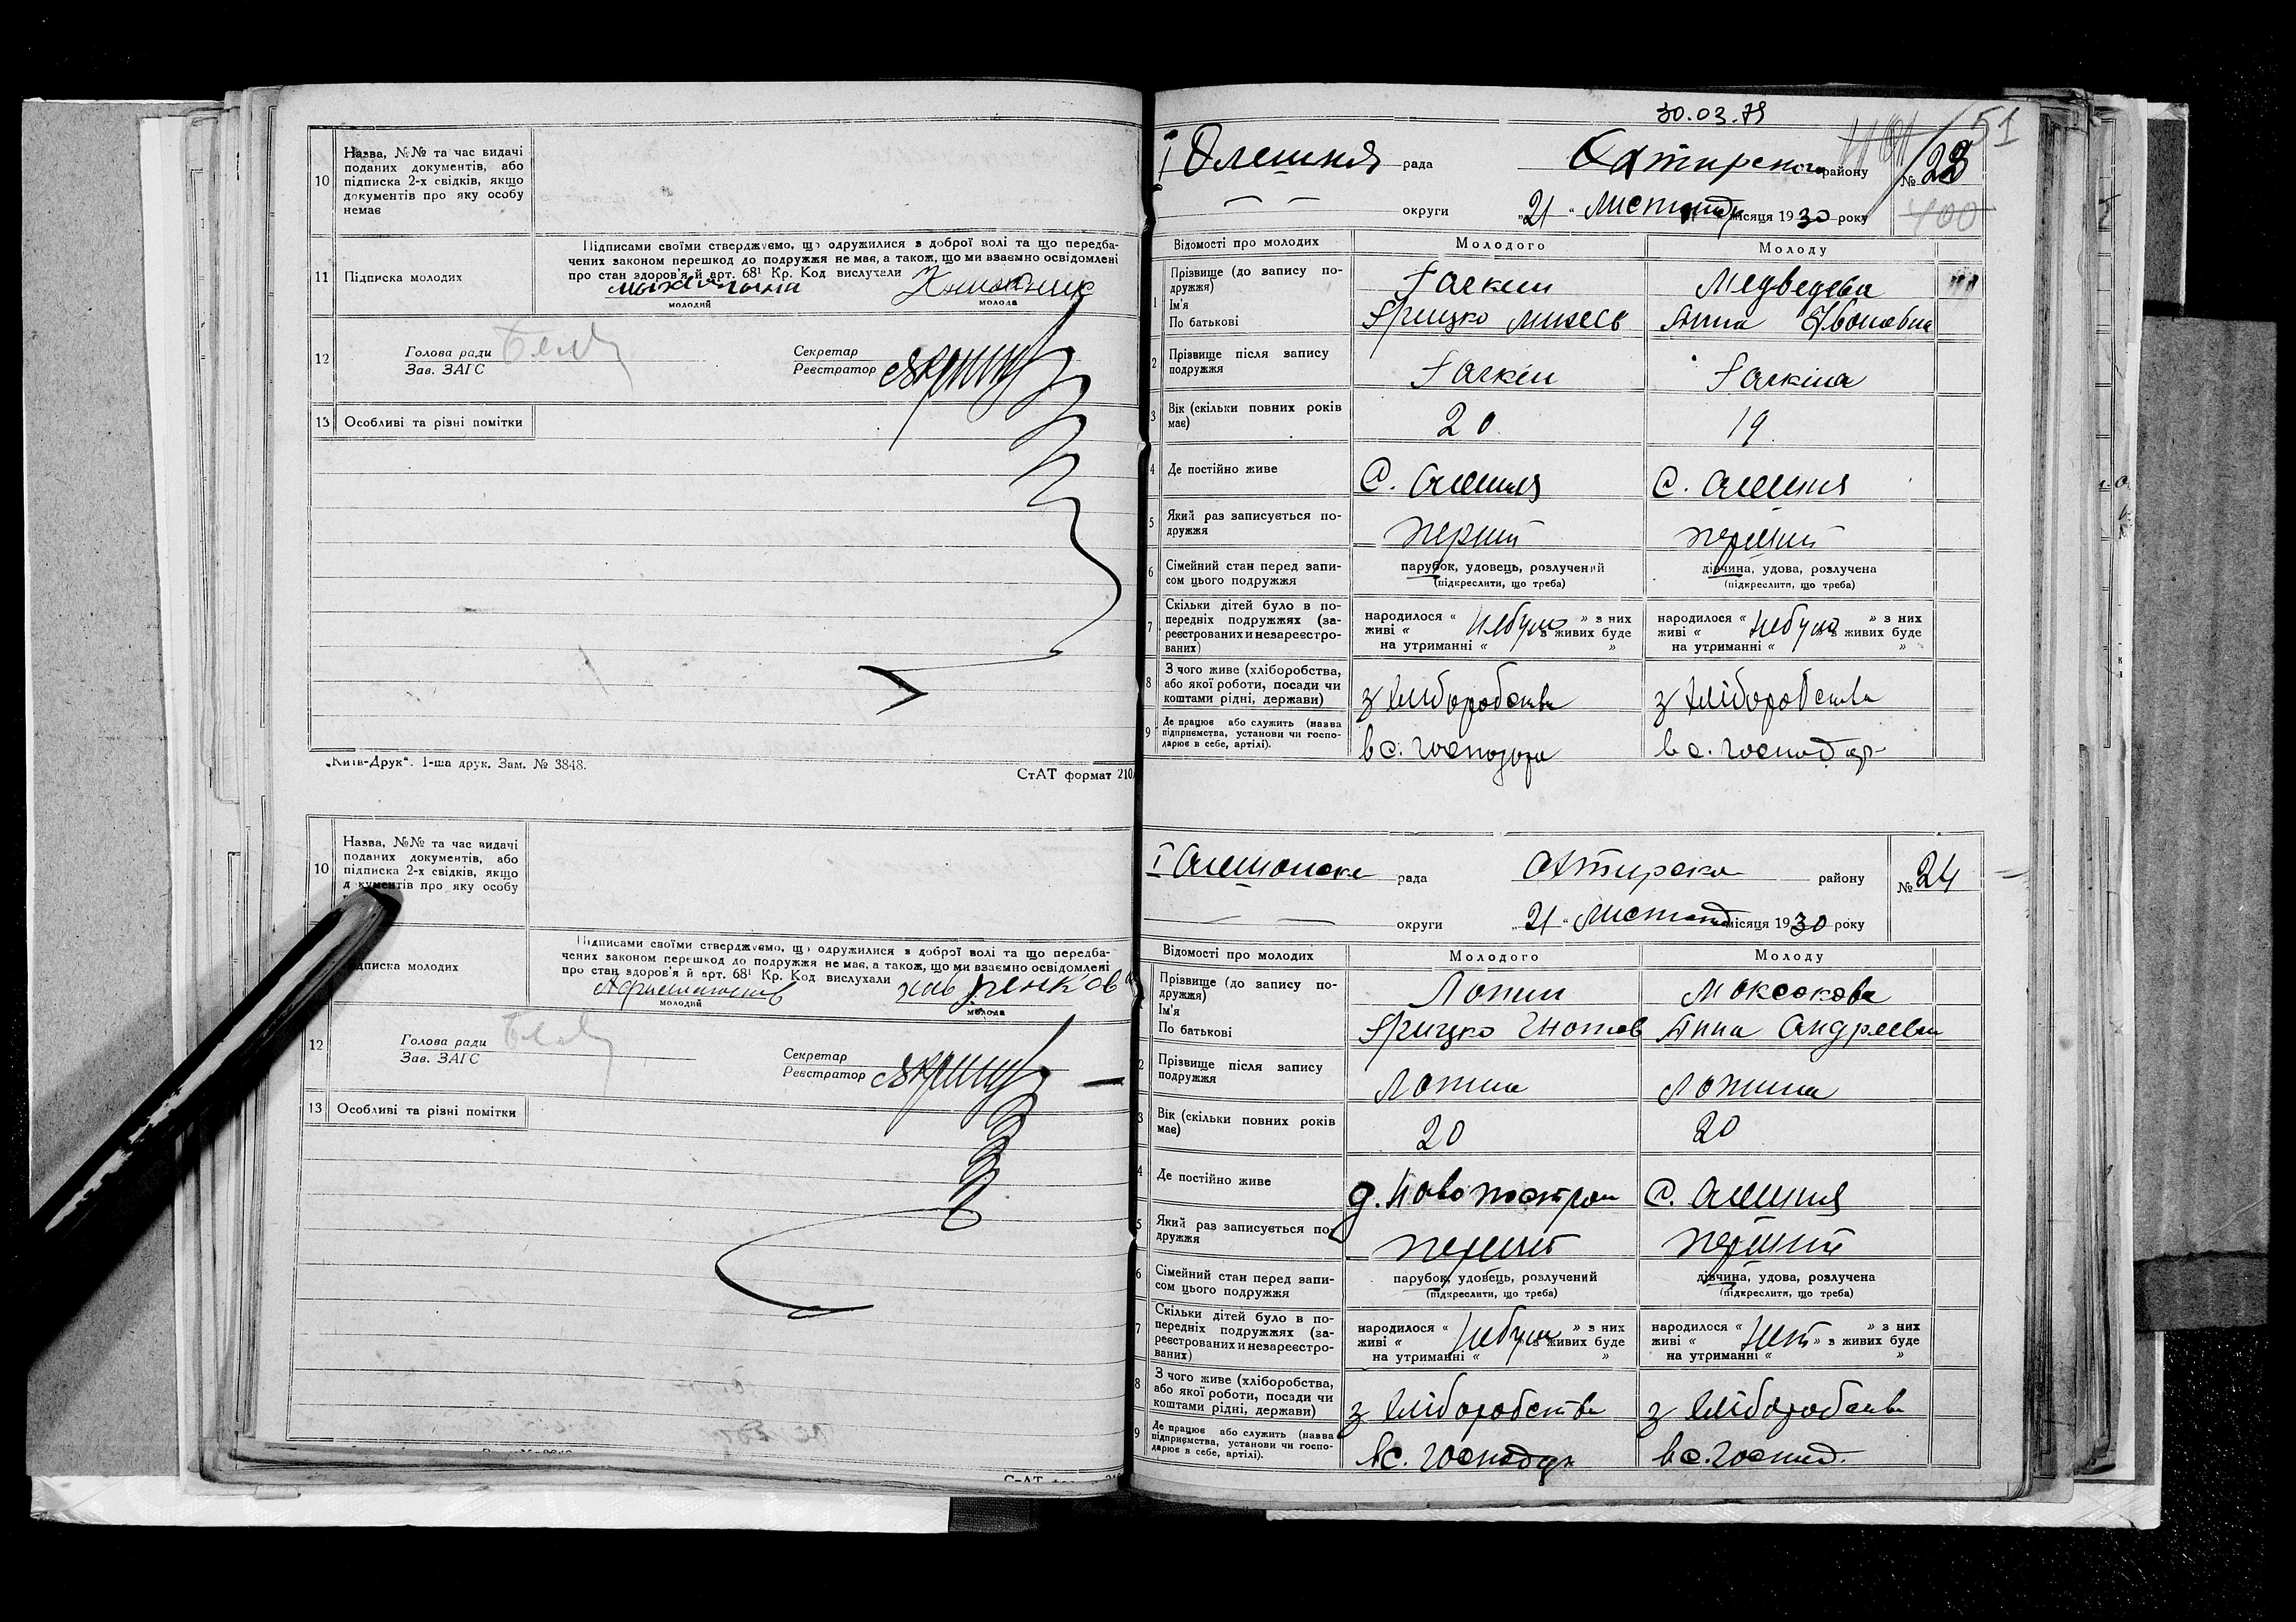 10 Назва, №№ та час видачі
поданих документів, або
підписка 2-х свідків, якщо
документів про яку особу
немає
11 Підписка молодих
Підписами своїми стверджуємо, що одружилися з доброї волі та що передба-
чених законом перешкод до подружжя не має, а також, що ми взаємно освідомлені
про стан здоров'я й арт. 68¹ Кр. Код вислухали
молодий молода
12 Голова ради
Зав. ЗАГС
Секретар
Реєстратор
13 Особливі та різні помітки
„Київ-Друк“. 1-ша друк. Зам. № 3848.
СтАТ формат 210
10 Назва, №№ та час видачі
поданих документів, або
підписка 2-х свідків, якщо
документів про яку особу
підписка молодих
Підписами своїми стверджуємо, що одружилися з доброї волі та що передба-
чених законом перешкод до подружжя не має, а також, що ми взаємно освідомлені
про стан здоров'я й арт. 68¹ Кр. Код вислухали
молодий молода
12 Голова ради
Зав. ЗАГС
Секретар
Реєстратор
13 Особливі та різні помітки
30.03.79
51
І Олешня рада Охтирского району № 23
400
округи „21“ Листопад місяця 1930 року
Відомості про молодих Молодого Молоду
1 Прізвище (до запису по-
дружжя) Галкин Медведева
Ім'я
По батькові Грицко Анна Ивановна
2 Прізвище після запису
подружжя Галкин Галкина
3 Вік (скільки повних років
має) 20 19
4 Де постійно живе С. Олешня С. Олешня
5 Який раз записується по-
дружжя перший перший
6 Сімейний стан перед запи-
сом цього подружжя
парубок, удовець, розлучений дівчина, удова, розлучена
(підкреслити, що треба) (підкреслити, що треба)
7 Скільки дітей було в по-
передніх подружжях (за-
реєстрованих и незареєстро-
ваних)
народилося « » з них народилося « » з них
живі « небуло з живих буде живі « небуло з живих буде
на утриманні « » на утриманні « »
8 З чого живе (хліборобства,
або якої роботи, посади чи
коштами рідні, держави) з хліборобства з хліборобства
9 Де працює або служить (назва
підприємства, установи чи госпо-
дарює в себе, артілі). в с. господар в с. господар
І рада Охтирска району № 24
округи „21“ Листопад місяця 1930 року
Відомості про молодих Молодого Молоду
Прізвище (до запису по-
дружжя) Лопин Моксакова
Ім'я
По батькові Грицко Анна Андреевн
2 Прізвище після запису
подружжя Лопин Лопина
3 Вік (скільки повних років
має) 20 20
4 Де постійно живе С. Олешня
5 Який раз записується по-
дружжя перший перший
6 Сімейний стан перед запи-
сом цього подружжя
парубок, удовець, розлучений дівчина, удова, розлучена
(підкреслити, що треба) (підкреслити, що треба)
7 Скільки дітей було в по-
передніх подружжях (за-
реєстрованих и незареєстро-
ваних)
народилося « » з них народилося « » з них
живі « небуло з живих буде живі « нет » з живих буде
на утриманні « » на утриманні « »
8 З чого живе (хліборобства,
або якої роботи, посади чи
коштами рідні, держави) з хліборобства з хліборобства
9 Де працює або служить (назва
підприємства, установи чи госпо-
дарює в себе, артілі). в с. господар в с. господ.